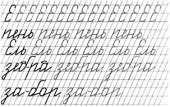 Е Е Е Е Е Е Е Е Е Е Е Е
пень пень пень пень
Ель Ель Ель Ель Ель Ель
зебра зебра зебра
за-бор за-бор